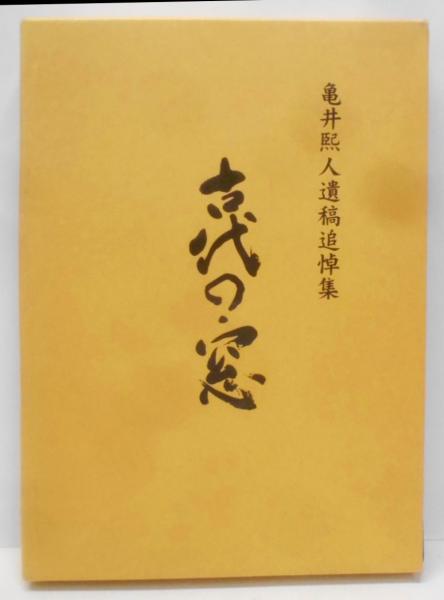 亀井熙人遺稿追悼集
古代の窓